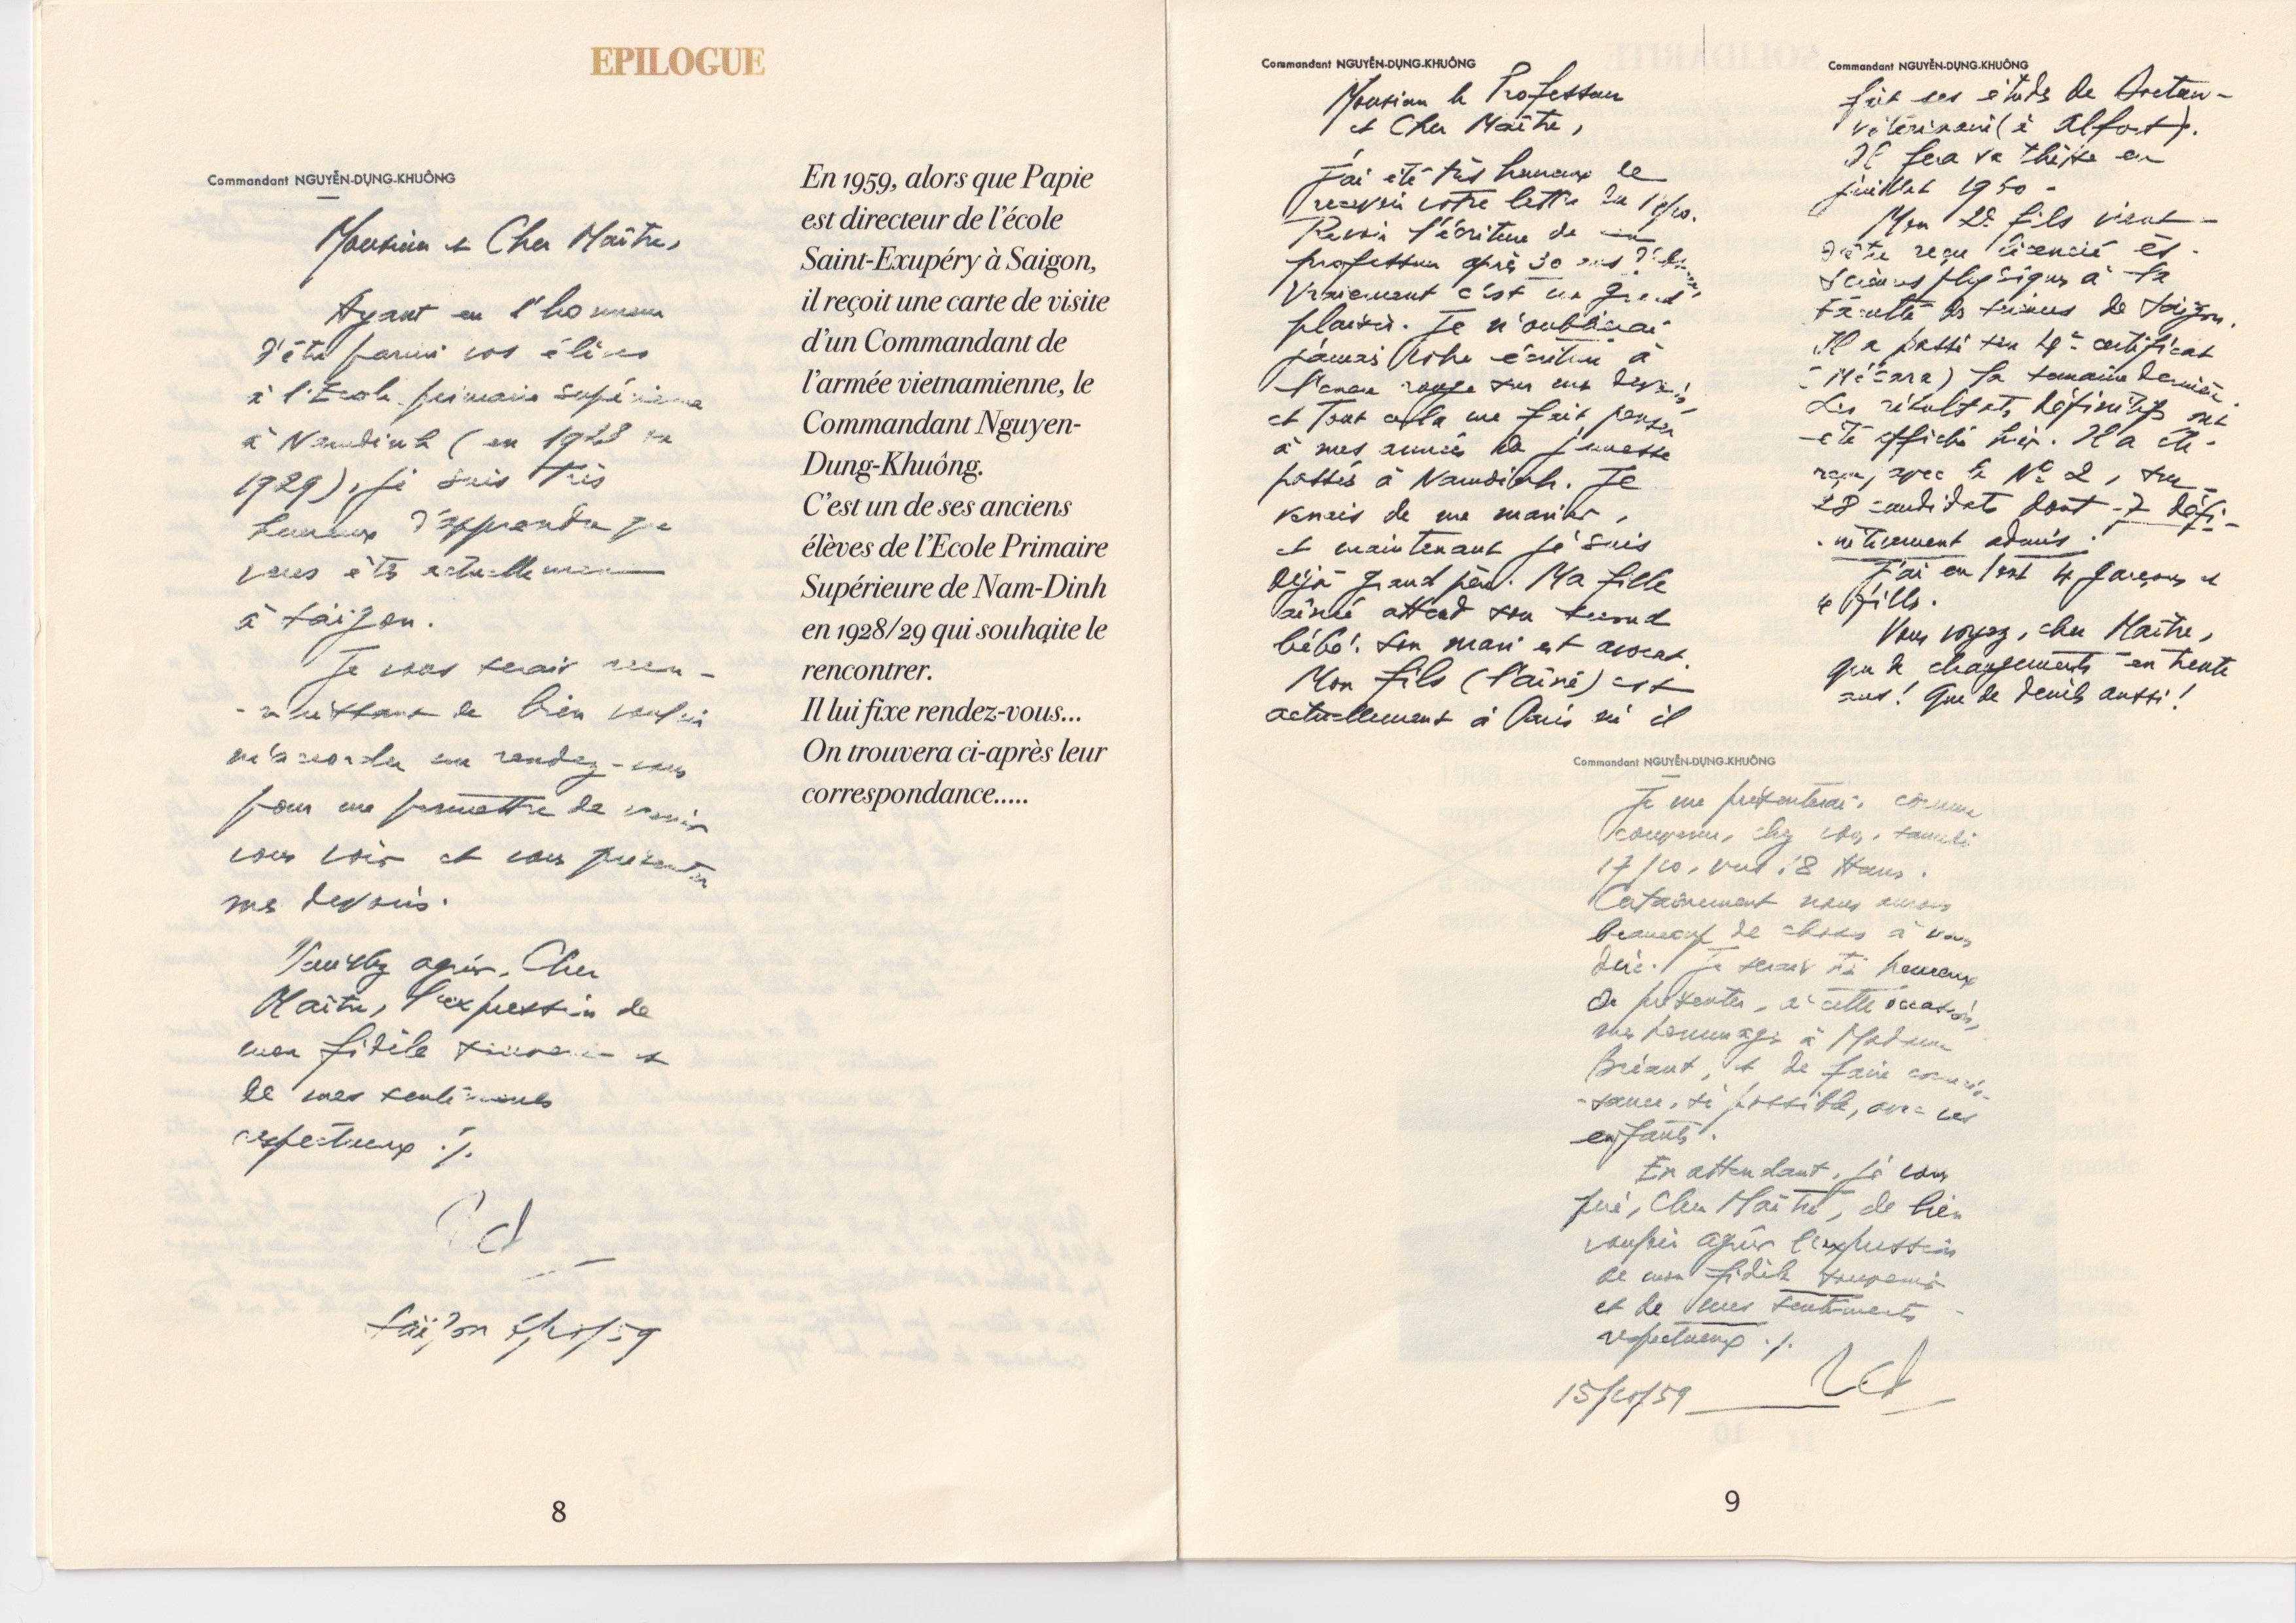 EPILOGUE
Commandant NGUYỄN-DỤNG-KHUÔNG
Monsieur et Cher Maître,
Ayant eu l'honneur
d'être parmi vos élèves
à l'Ecole primaire supérieure
à Namdinh (en 1928 
1929), je suis très
heureux d'apprendre que
vous êtes actuellement
à Saigon.
Je vous serais recon-
-naissant de bien vouloir
m'accorder un rendez-vous
pour me permettre de venir
vous voir et vous présenter
mes devoirs.
Veuillez agréer, Cher
Maître, l'expression de
mon fidèle souvenir et
de mes sentiments
respectueux ./.
Saïgon /59
En 1959, alors que Papie
est directeur de l'école
Saint-Exupéry à Saigon,
il reçoit une carte de visite
d'un Commandant de
l'armée vietnamienne, le
Commandant Nguyen-
Dung-Khuông.
C'est un de ses anciens
élèves de l'Ecole Primaire
Supérieure de Nam-Dinh
en 1928/29 qui souhaite le
rencontrer.
Il lui fixe rendez-vous...
On trouvera ci-après leur
correspondance.....
8
Commandant NGUYỄN-DỤNG-KHUÔNG
Monsieur le Professeur
et Cher Maître,
J'ai été très heureux de
recevoir votre lettre du
Revoir l'écriture de
professeur après 30 ans
Vraiement c'est un grand
plaisir. Je n'oublierai
jamais votre écriture à
l'encre rouge sur mes devoirs,
et tout cela me fait penser
à mes années de jeunesse
passées à Namdinh. Je
venais de me marier,
et maintenant je suis
déjà grand père. Ma fille
aînée attend son second
bébé. Son mari est avocat.
Mon fils (l'aîné) est
actuellement à Paris où il
Commandant NGUYỄN-DỤNG-KHUÔNG
fait ses études de Docteur-
vétérinaire (à Alfort).
Il fera sa thèse en
juillet 1950.
Mon 2è fils vient
d'être reçu licencié ès-
Sciences physiques à la
Faculté des Sciences de Saigon.
Il a passé son 4è certificat
) la semaine dernière.
Les résultats définitifs ont
été affichés hier. Il a été
reçu, avec le No 2, sur
28 candidats dont 7 défi-
-nitivement admis.
J'ai en tout 4 garçons et
4 filles.
Vous voyez, cher Maître,
que de changements en trente
ans! Que de deuils aussi!
Commandant NGUYỄN-DỤNG-KHUÔNG
Je me présenterai, comme
convenu, chez vous, samedi
17/10, vers 18 Heures.
Certainement nous aurons
beaucoup de choses à nous
dire. Je serais très heureux
de présenter, à cette occasion,
mes hommages à Madame
Bréant, et de faire connais-
-sance, si possible, avec vos
enfants.
En attendant, je vous
prie, Cher Maître, de bien
vouloir agréer l'expression
de mon fidèle souvenir
et de mes sentiments
respectueux ./.
15/10/59
9